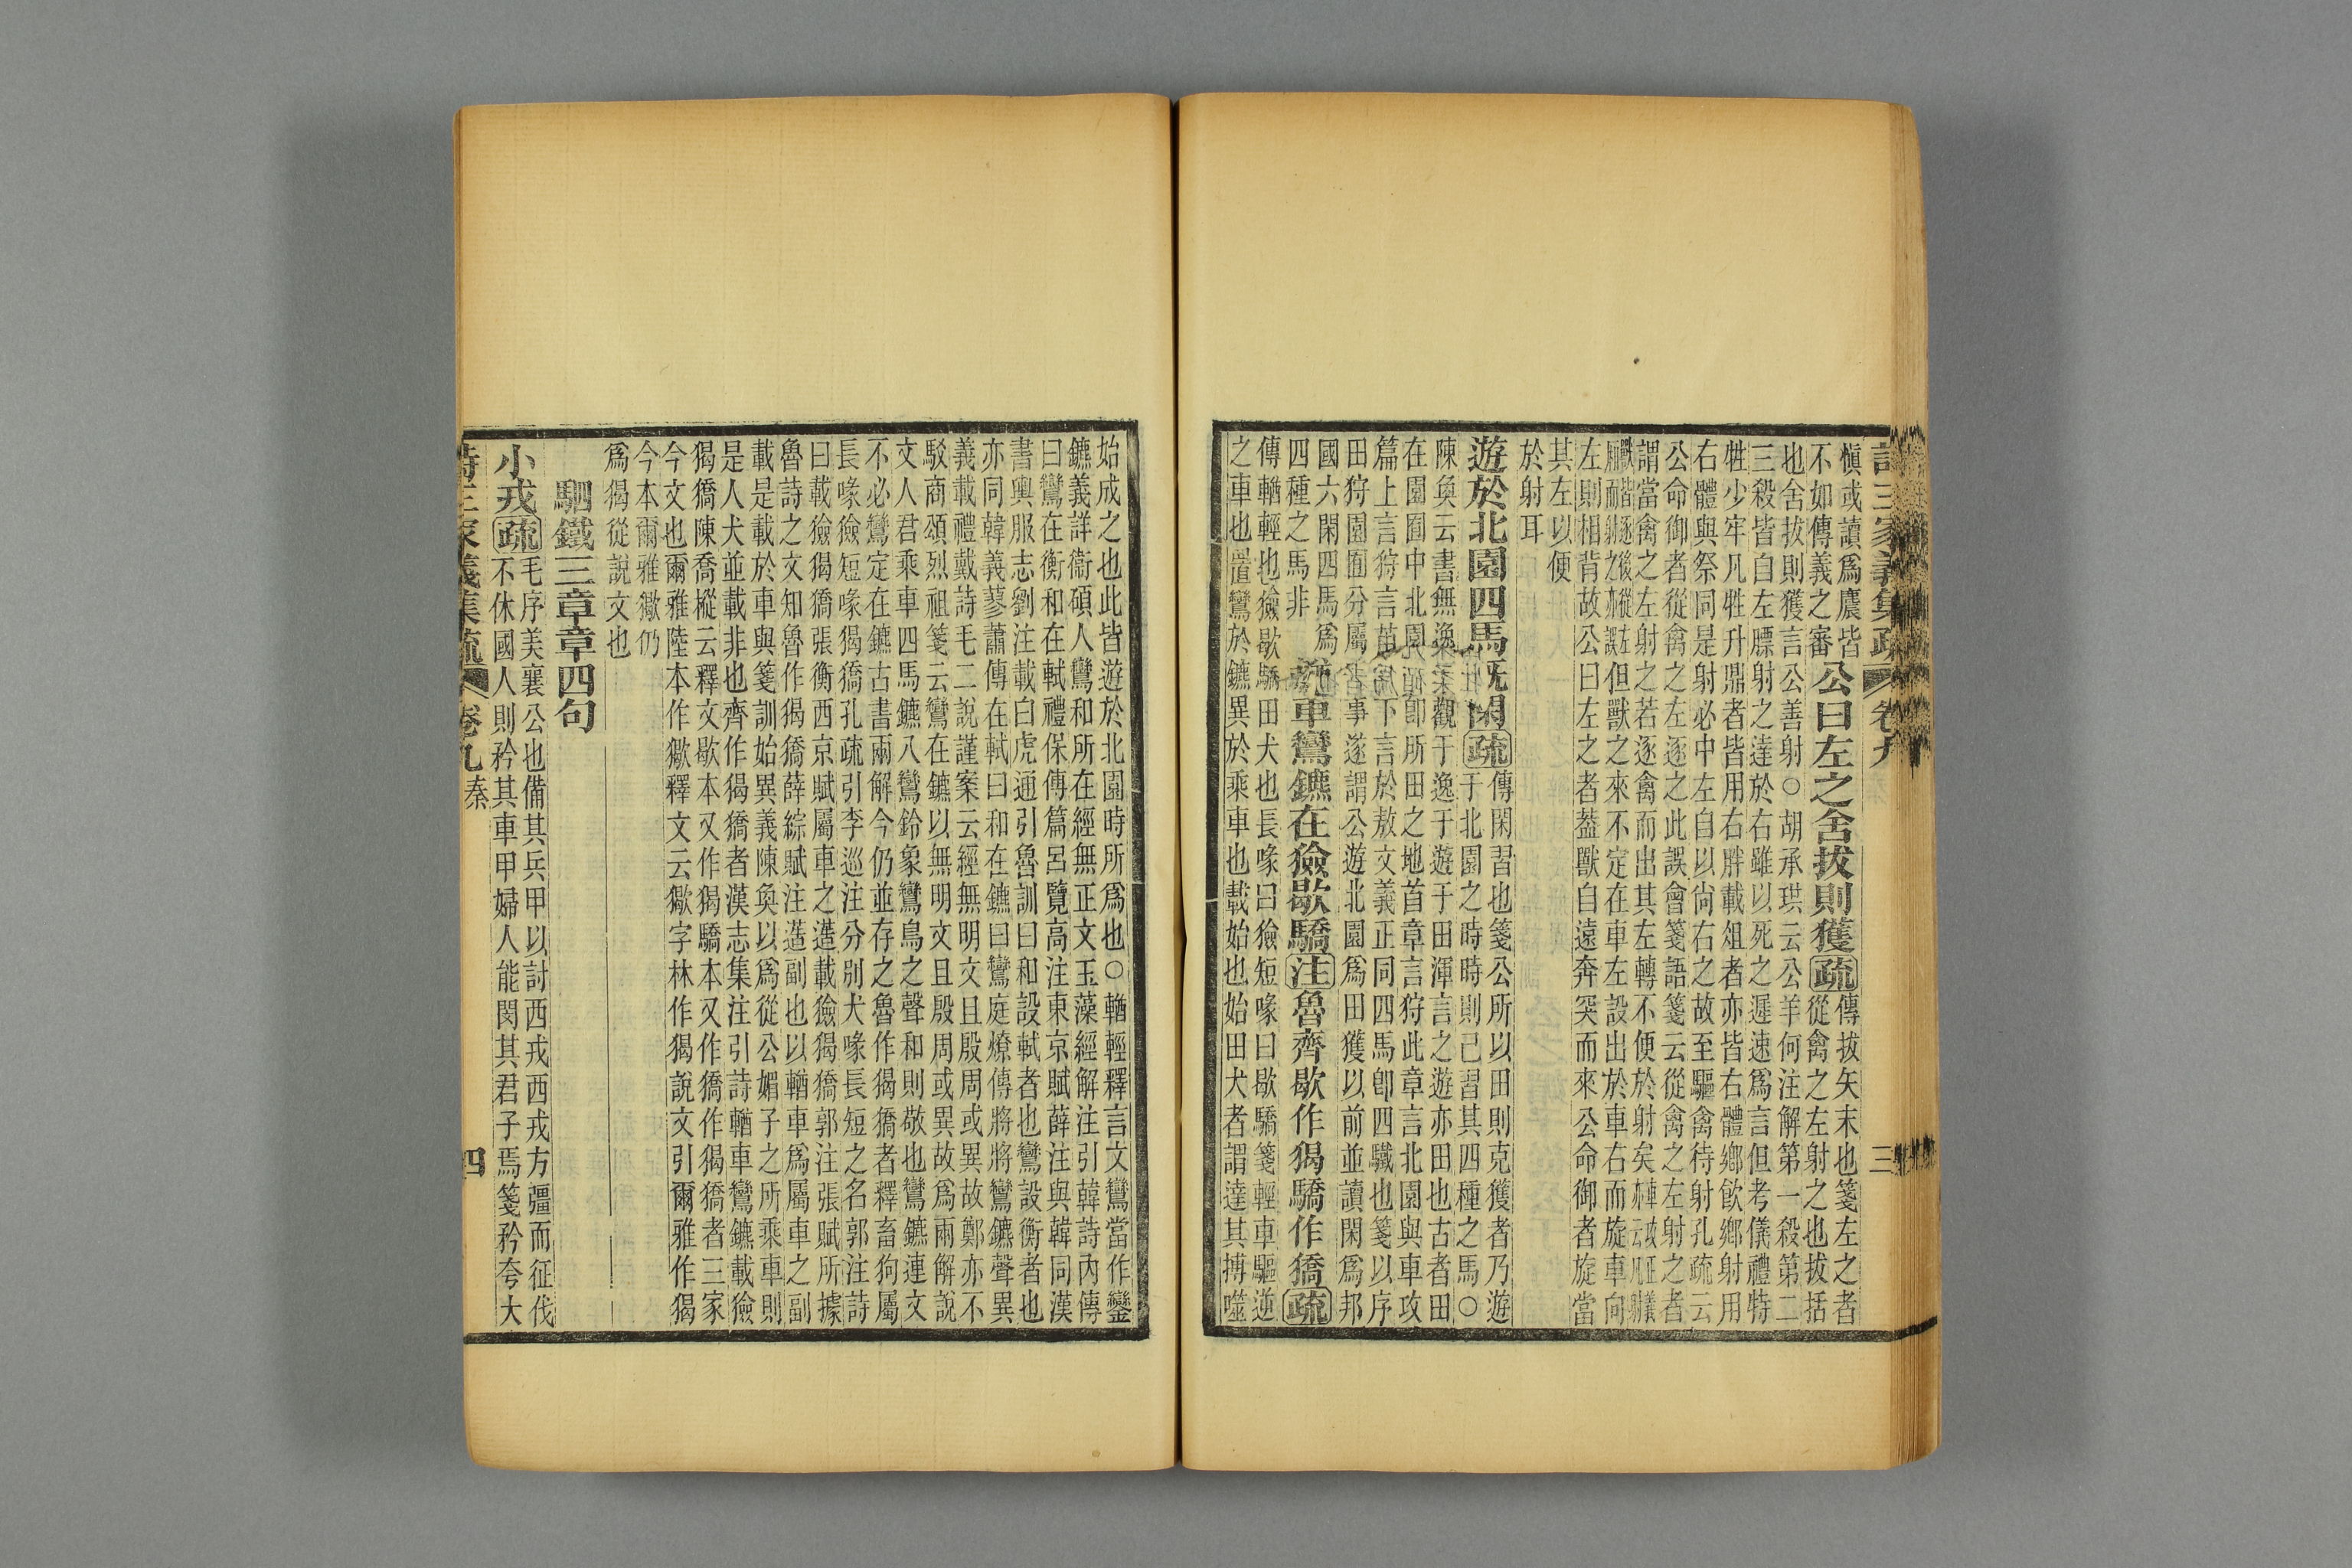 詩三家義集疏 卷九 三
慎或讀爲麎皆
不如傳義之審
公曰左之舍拔則獲疏
傳拔矢末也箋左之者
從禽之左射之也拔括
也舍拔則獲言公善射○胡承珙云公羊何注解第一殺第二
三殺皆自左膘射之達於右雖以死之遲速爲言但考儀禮特
牲少牢凡牲升鼎者皆用右胖載俎者亦皆右體鄉飲鄉射用
右體與祭同是射必中左自以尙右之故至驅禽待射孔疏云
公命御者從禽之左逐之此誤會箋語箋云從禽之左射之者
謂當禽之左射之若逐禽而出其左轉不便於射矣
左則相背故公曰左之者葢獸自遠奔突而來公命御者旋當
但獸之來不定在車左設出於車右而旋車向
其左以便
於射耳
遊於北園四馬旣閑疏
傳閑習也箋公所以田則克獲者乃遊
于北園之時時則已習其四種之馬○
陳奐云書無逸于觀于逸于遊于田渾言之遊亦田也古者田
在園囿中北園卽所田之地首章言狩此章言北園與車攻
篇上言狩言苗下言於敖文義正同四馬卽四驖也箋以序
田狩園囿分屬事遂謂公遊北園爲田獲以前並讀閑爲邦
國六閑四馬爲
四種之馬非
車鸞鑣在獫歇驕注魯齊歇作猲驕作獢疏
傳輶輕也獫歇驕田犬也長喙曰獫短喙曰歇驕箋輕車驅逆
之車也置鸞於鑣異於乘車也載始也始田犬者謂達其搏噬
始成之也此皆遊於北園時所爲也○輶輕釋言文鸞當作鑾
鑣義詳衞碩人鸞和所在經無正文玉藻經解注引韓詩內傳
曰鸞在衡和在軾禮保傳篇呂覽高注東京賦薛注與韓同漢
書輿服志劉注載白虎通引魯訓曰和設軾者也鸞設衡者也
亦同韓義蓼蕭傳在軾曰和在鑣曰鸞庭燎傳將將鸞鑣聲異
義載禮戴詩毛二說謹案云經無明文且殷周或異故鄭亦不
駁商頌烈祖箋云鸞在鑣以無明文且殷周或異故爲兩解說
文人君乘車四馬鑣八鸞鈴象鸞鳥之聲和則敬也鸞鑣連文
不必鸞定在鑣古書兩解今仍並存之魯作猲獢者釋畜狗屬
長喙獫短喙猲獢孔疏引李巡注分別犬喙長短之名郭注詩
曰載獫猲獢張衡西京賦屬車之簉載獫猲獢郭注張賦所據
魯詩之文知魯作猲獢薛綜賦注簉副也以輶車爲屬車之副
載是載於車與箋訓始異義陳奐以爲從公媚子之所乘車則
是人犬並載非也齊作猲獢者漢志集注引詩輶車鸞鑣載獫
猲獢陳喬樅云釋文歇本又作猲驕本又作獢作猲獢者三家
今文也爾雅陸本作獥釋文云獥字林作猲說文引爾雅作猲
今本爾雅獥仍
爲猲從說文也
駟鐵三章章四句
小戎疏
毛序美襄公也備其兵甲以討西戎西戎方彊而征伐
不休國人則矜其車甲婦人能閔其君子焉箋矜夸大
詩三家義集疏 卷九 秦 四